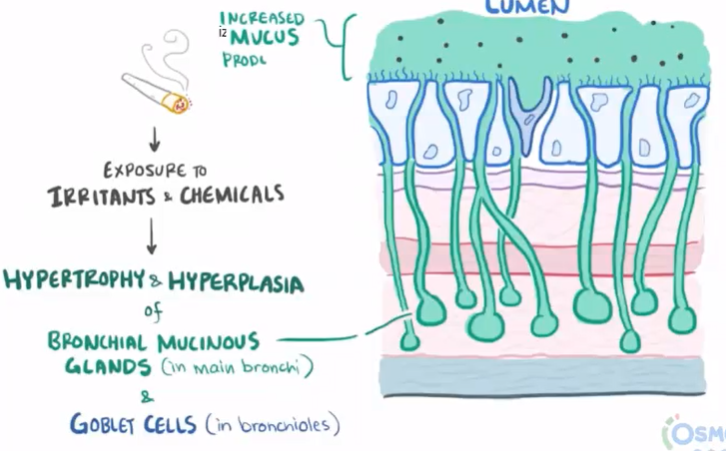 LUMEN
INCREASED
iz MUCUS
PRODU
EXPOSURE TO
IRRITANTS & CHEMICALS
HYPERTROPHY & HYPERPLASIA
of
BRONCHIAL MUCINOUS
GLANDS (in main bronchi)
&
GOBLET CELLS (in bronchioles)
OSM